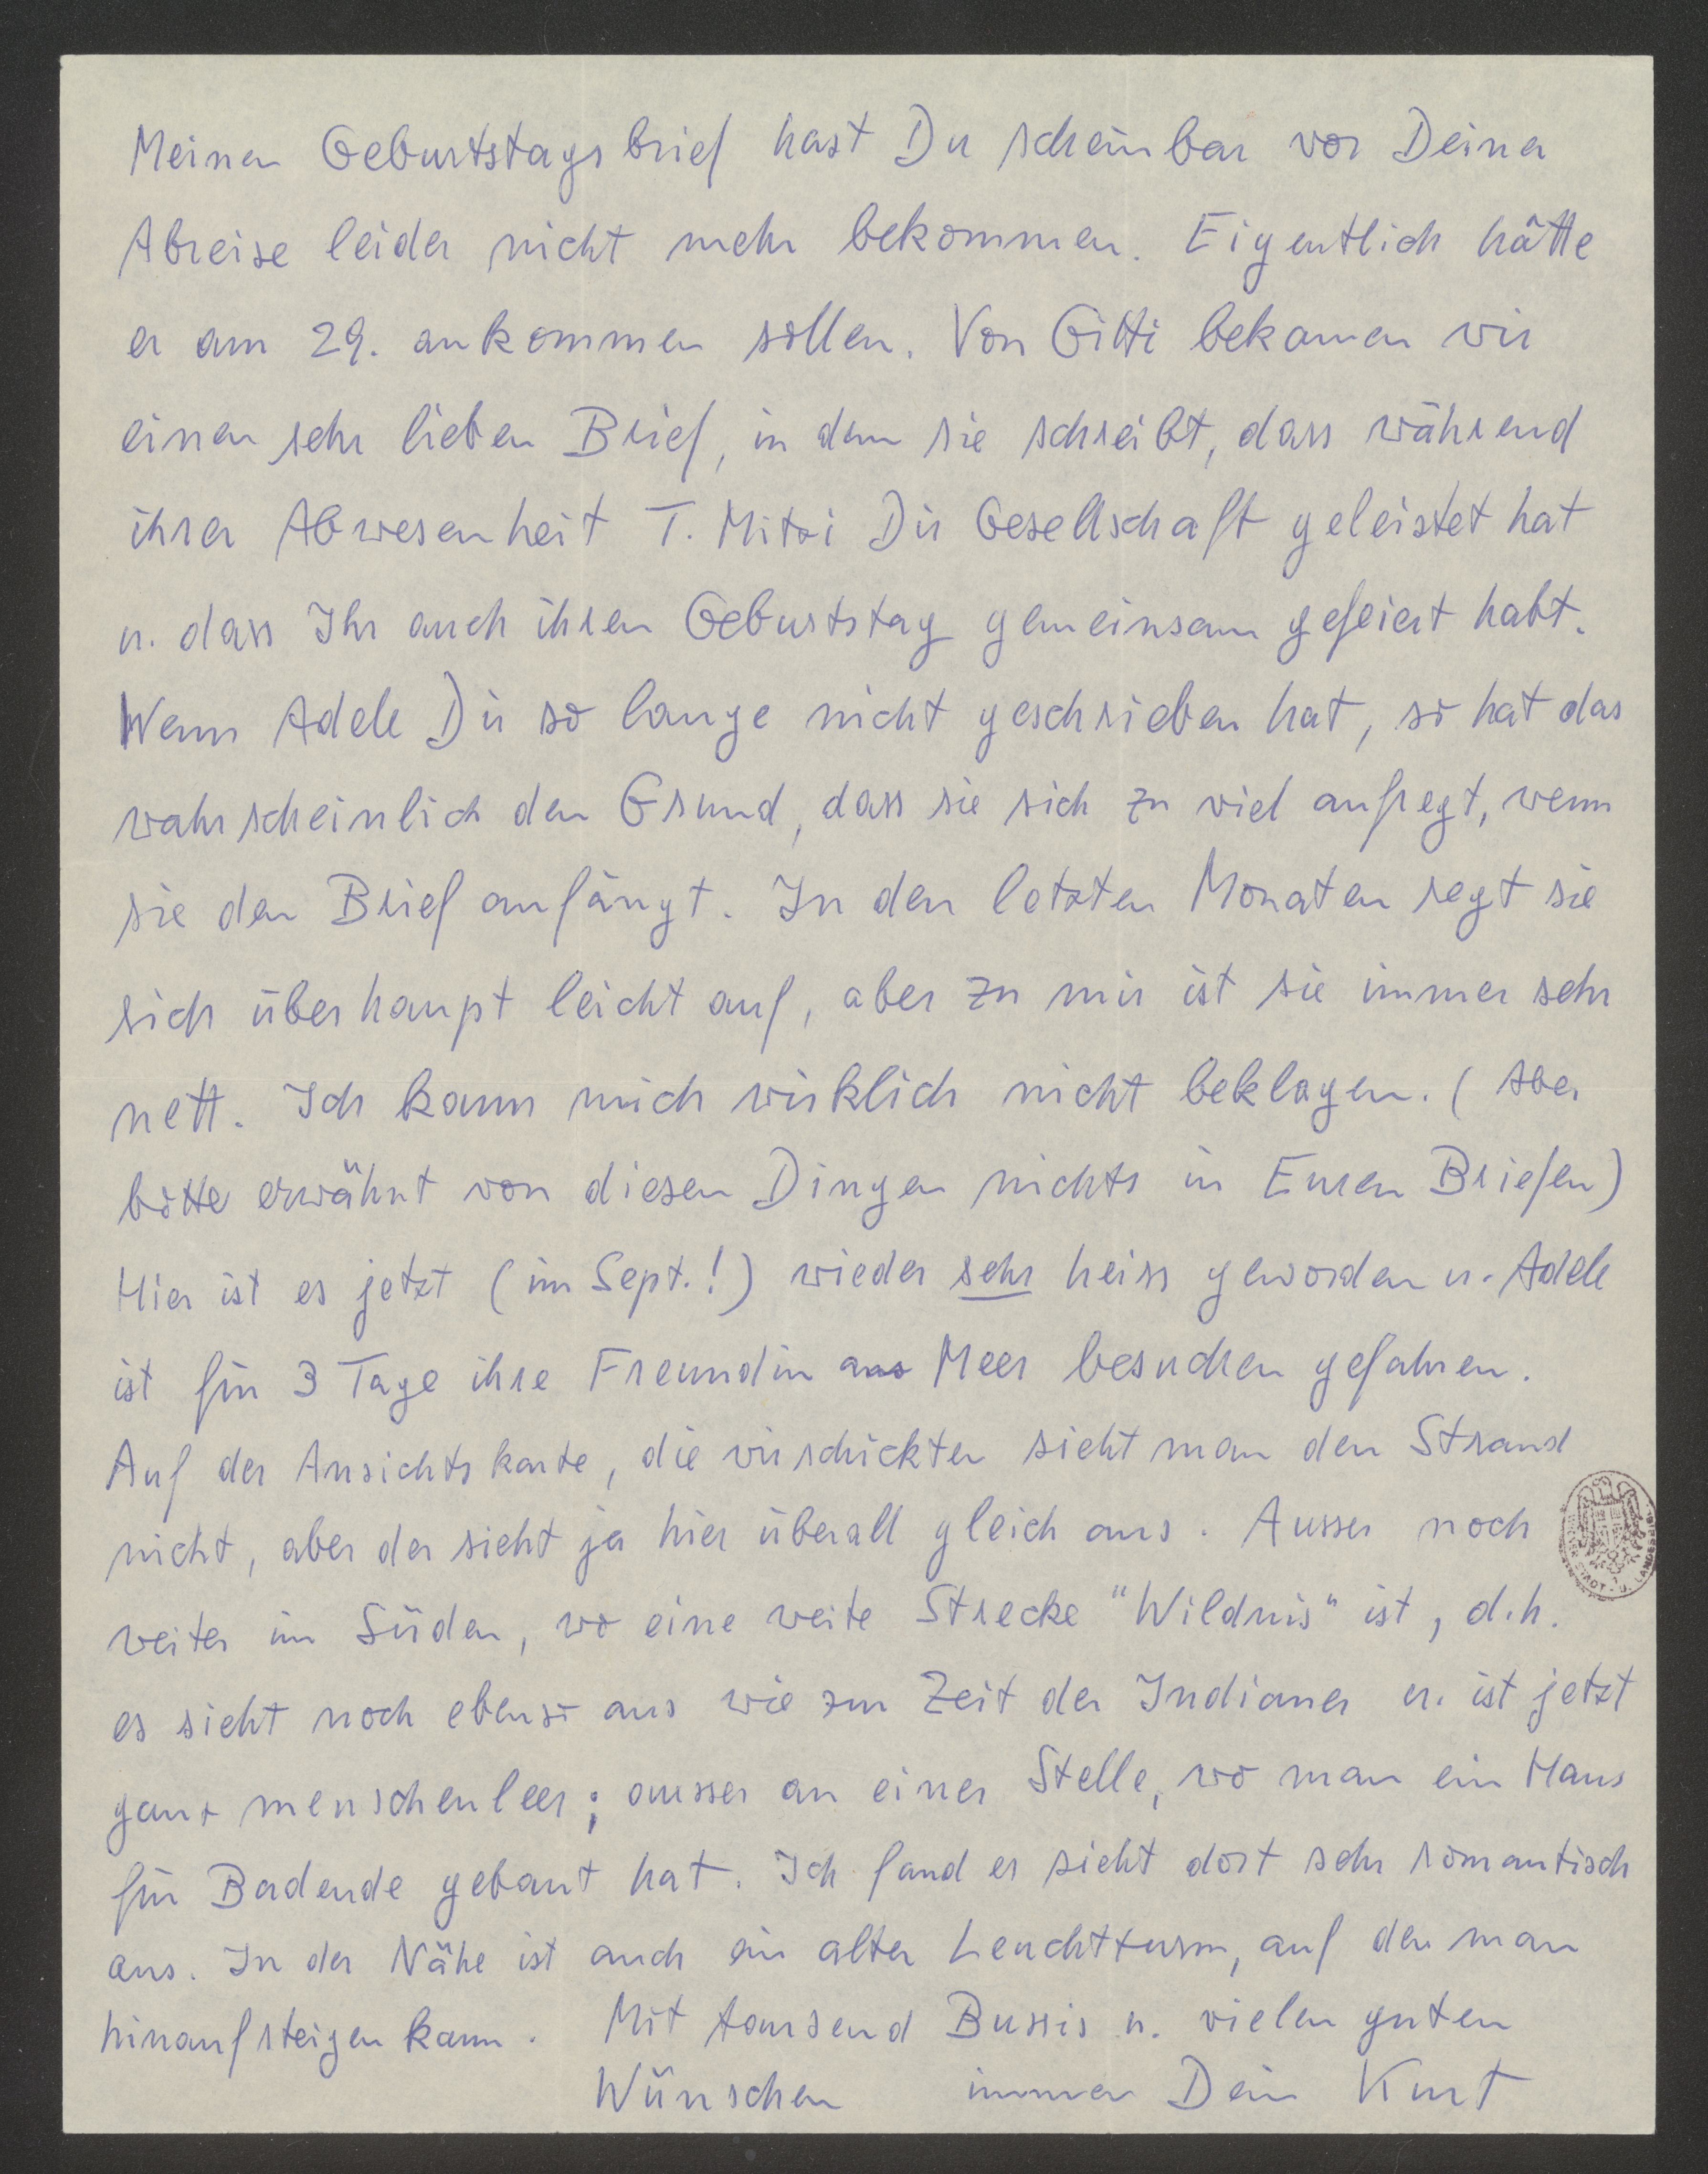 Meinen Geburtstagsbrief hast Du scheinbar vor Deiner
Abreise leider nicht mehr bekommen. Eigentlich hätte
er am 29. ankommen sollen. Von Gitti bekamen wir
einen sehr lieben Brief, in dem sie schreibt, dass während
ihrer Abwesenheit T. Mitzi Dir Gesellschaft geleistet hat
u. dass Ihr auch ihren Geburtstag gemeinsam gefeiert habt.
Wenn Adele Dir so lange nicht geschrieben hat, so hat das
wahrscheinlich den Grund, dass sie sich zu viel aufregt, wenn
sie den Brief anfängt. In den letzten Monaten regt sie
sich überhaupt leicht auf, aber zu mir ist sie immer sehr
nett. Ich kann mich wirklich nicht beklagen. (Aber
bitte erwähnt von diesen Dingen nichts in Euren Briefen)
Hier ist es jetzt (im Sept.!) wieder sehr heiss geworden u. Adele
ist für 3 Tage ihre Freundin ans Meer besuchen gefahren.
Auf der Ansichtskarte, die wir schickten sieht man den Strand
nicht, aber der sieht ja hier überall gleich aus. Ausser noch
weiter im Süden, wo eine weite Strecke "Wildnis" ist, d.h.
es sieht noch ebenso aus wie zur Zeit der Indianer u. ist jetzt
ganz menschenleer; ausser an einer Stelle, wo man ein Haus
für Badende gebaut hat. Ich fand es sieht dort sehr romantisch
aus. In der Nähe ist auch ein alter Leuchtturm, auf den man
hinaufsteigen kann. Mit tausend Bussis u. vielen guten
Wünschen immer Dein Kurt